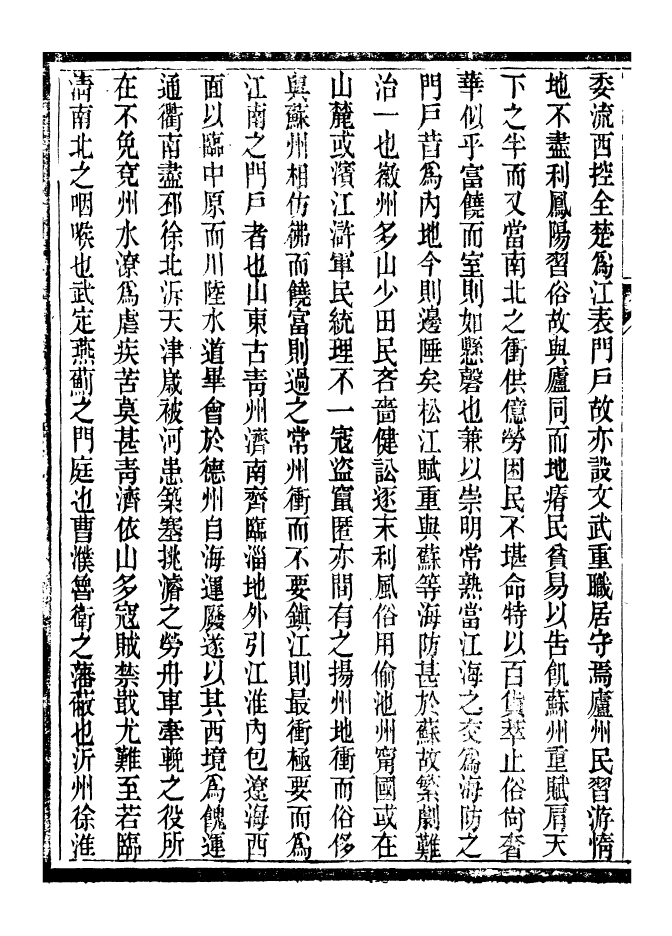 委流西控全楚爲江表門戸故亦設文武重職居守焉廬州民習游惰
地不盡利鳳陽習俗故與廬同而地瘠民貧易以告飢蘇州重賦肩天
下之半而又當南北之衝供億勞困民不堪命特以百貨萃止俗尙奢
華似乎富饒而室則如懸磬也兼以崇明常熟當江海之交爲海防之
門戸昔爲内地今則邊陲矣松江賦重與蘇等海防甚於蘇故繁劇難
治一也徽州多山少田民吝嗇健訟逐末利風俗用偷池州甯國或在
山麓或濱江滸軍民統理不一寇盜竄匿亦間有之揚州地衝而俗侈
與蘇州相仿彿而饒富則過之常州衝而不要鎭江則最衝極要而爲
江南之門戸者也山東古靑州濟南齊臨淄地外引江淮内包遼海西
面以臨中原而川陸水道畢會於德州自海運廢遂以其西境爲餽運
通衢南盡邳徐北泝天津歲被河患築塞挑濬之勞舟車牽輓之役所
在不免兗州水潦爲虐疾苦莫甚靑濟依山多寇賊禁戢尤難至若臨
淸南北之咽喉也武定燕薊之門庭也曹濮魯衛之藩蔽也沂州徐淮